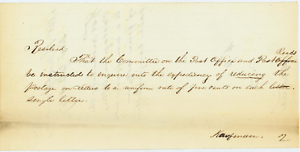 Resolved.
That the Committee on the Post Office and Post Roads
be instructed to enquire into the expediency of reducing the
postage on letters to a uniform rate of five cents on each
single letter.
Kaufman
2